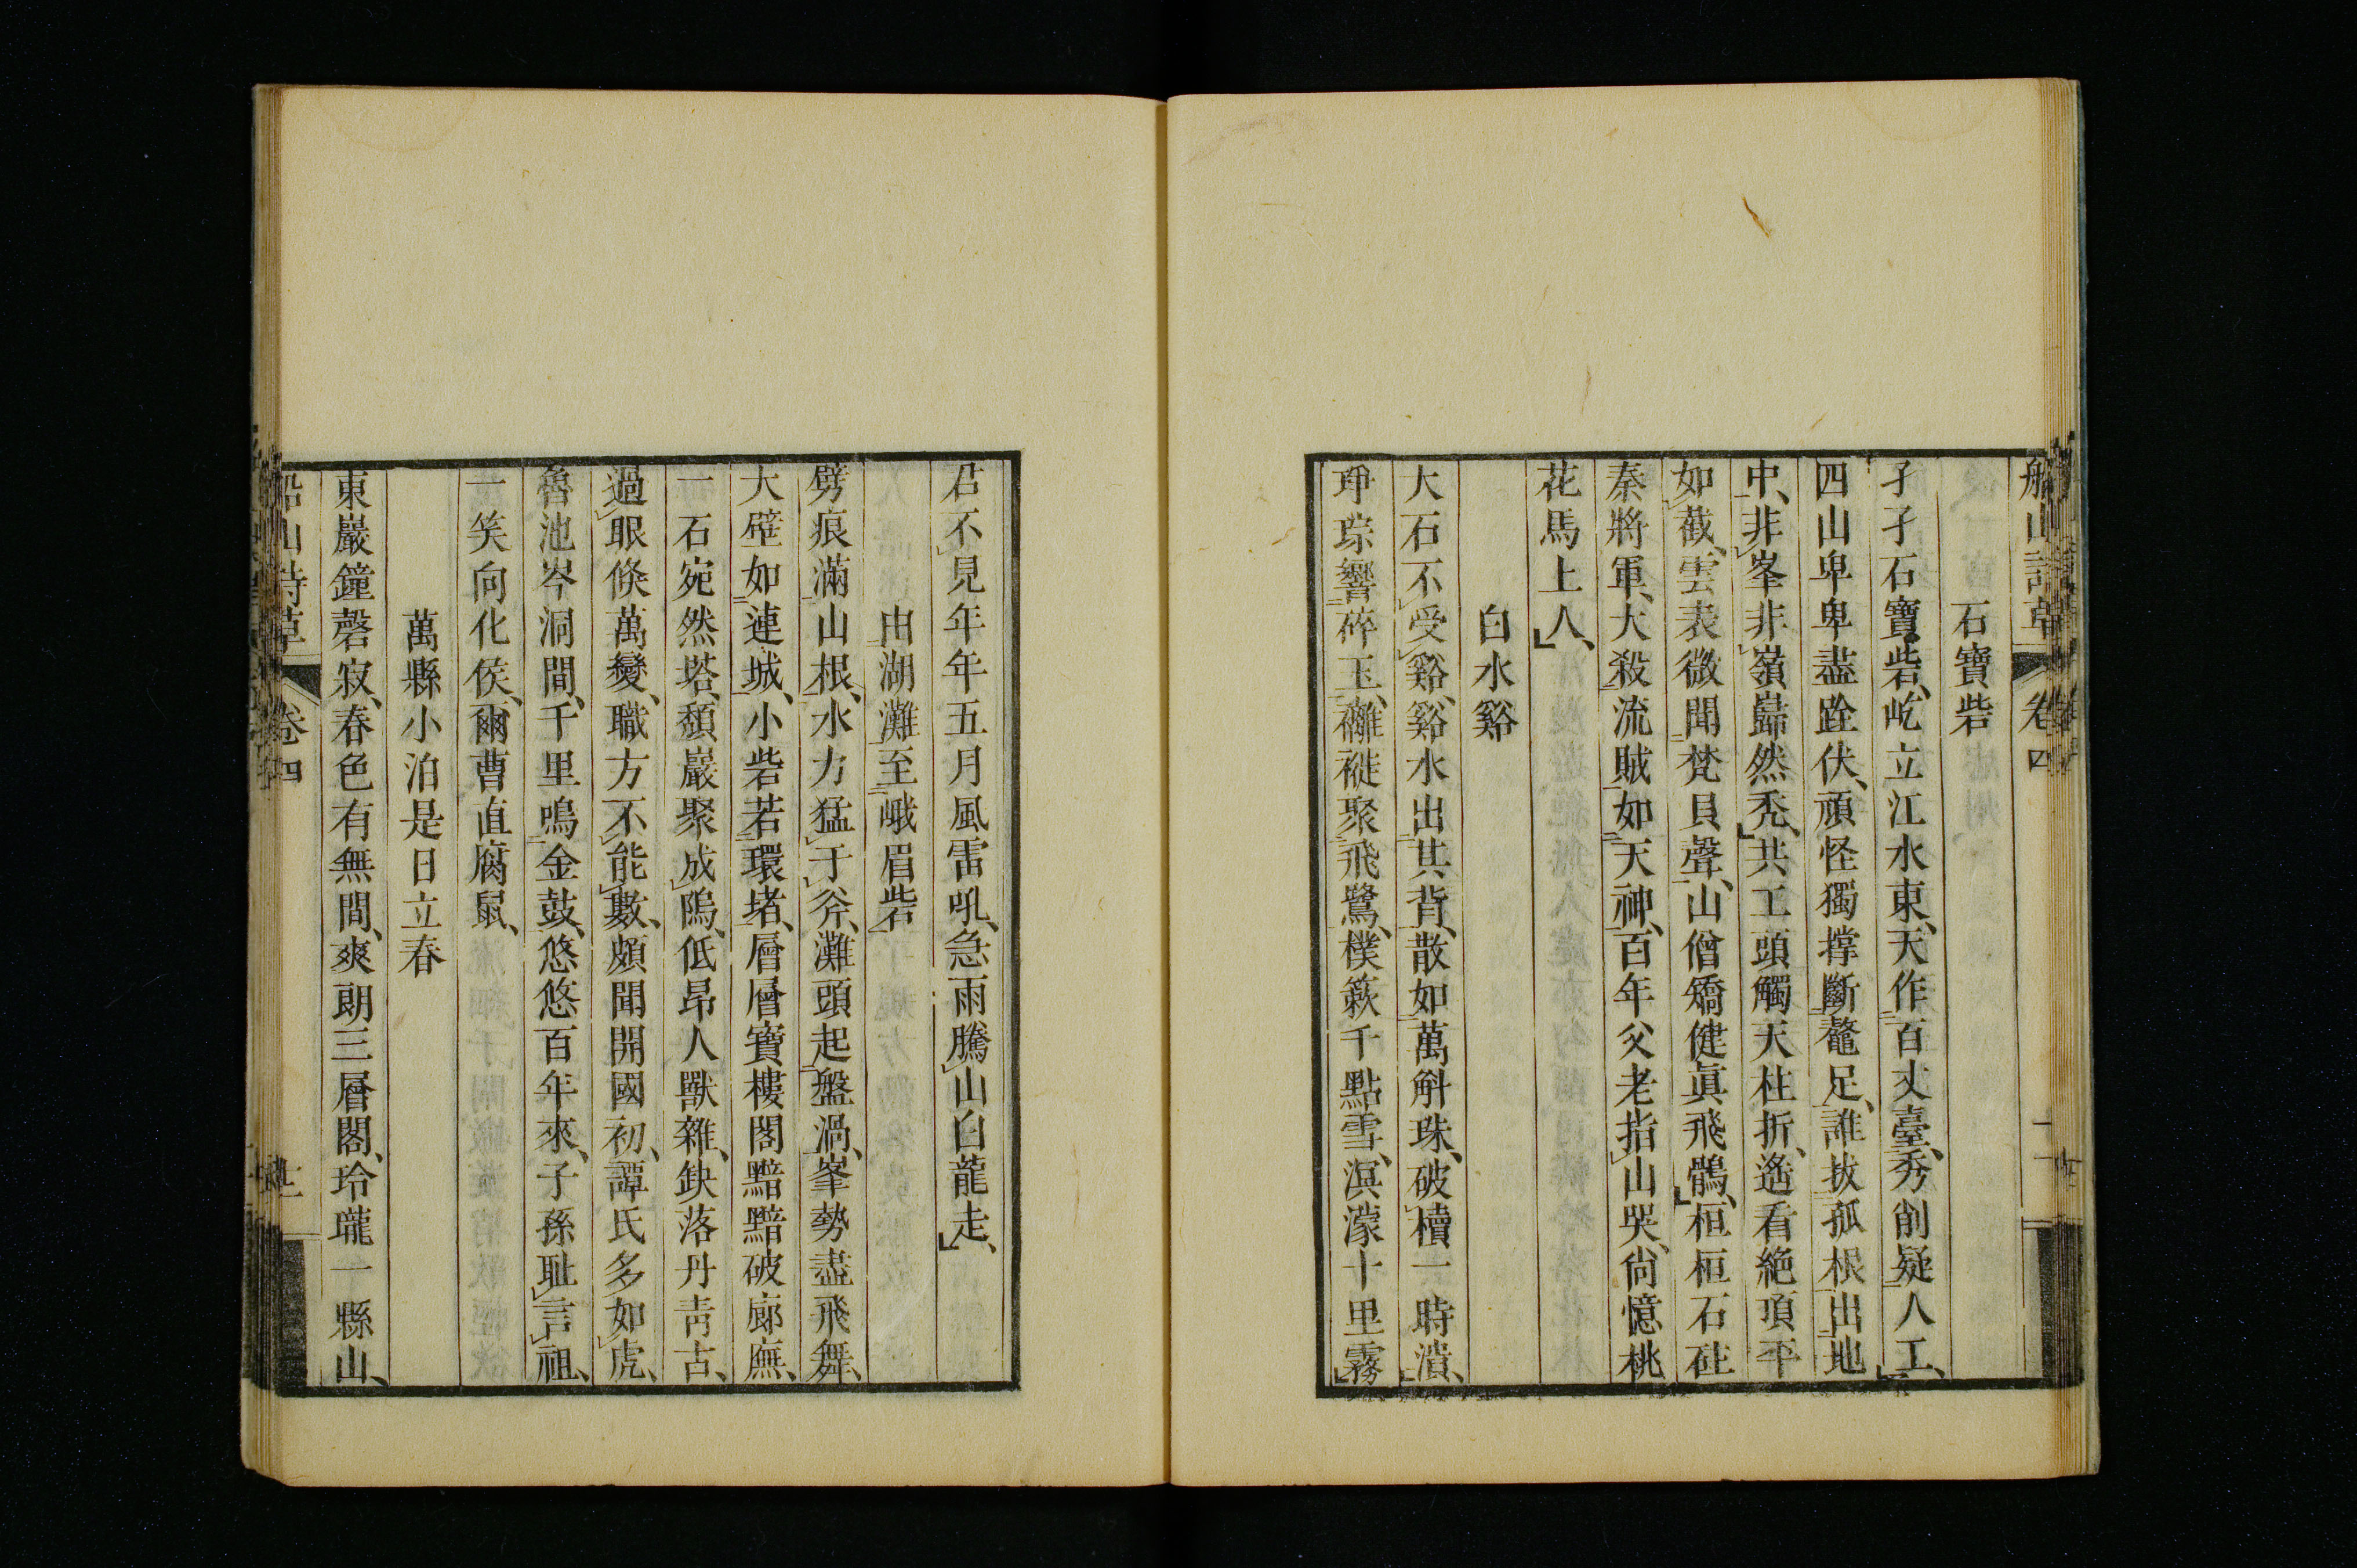 船山詩草 卷四
石寶砦
孑孑石寶砦、屹立江水東、天作百丈臺、秀削疑人工、
四山卑卑盡跧伏、頑怪獨撐斷鼇足、誰拔孤根出地
中、非峯非嶺巋然禿、共工頭觸天柱折、遙看絶頂平
如截、雲表微聞梵貝聲、山僧矯健眞飛鶻、桓桓石砫
秦將軍、大殺流賊如天神、百年父老指山哭、尙憶桃
花馬上人、
白水谿
大石不受谿、谿水出其背、散如萬斛珠、破櫝一時潰、
琤琮響碎玉、襹褷聚飛鷺、樸簌千點雪、溟濛十里霧
君不見年年五月風雷吼、急雨騰山白龍走、
由湖灘至峨眉砦
劈痕滿山根、水力猛于斧、灘頭起盤渦、峯勢盡飛舞、
大壁如連城、小砦若環堵、層層寶樓閣黯黯破廊廡、
一石宛然塔、頽巖聚成隖、低昂人獸雜、缺落丹靑古、
過眼倐萬變、職方不能數、頗聞開國初、譚氏多如虎、
魯池岑洞間、千里鳴金鼓、悠悠百年來、子孫耻言祖、
一笑向化侯、爾曹直腐鼠、
萬縣小泊是日立春
東巖鐘磬寂、春色有無間、爽朗三層閣、玲瓏一縣山、
船山詩草 卷四